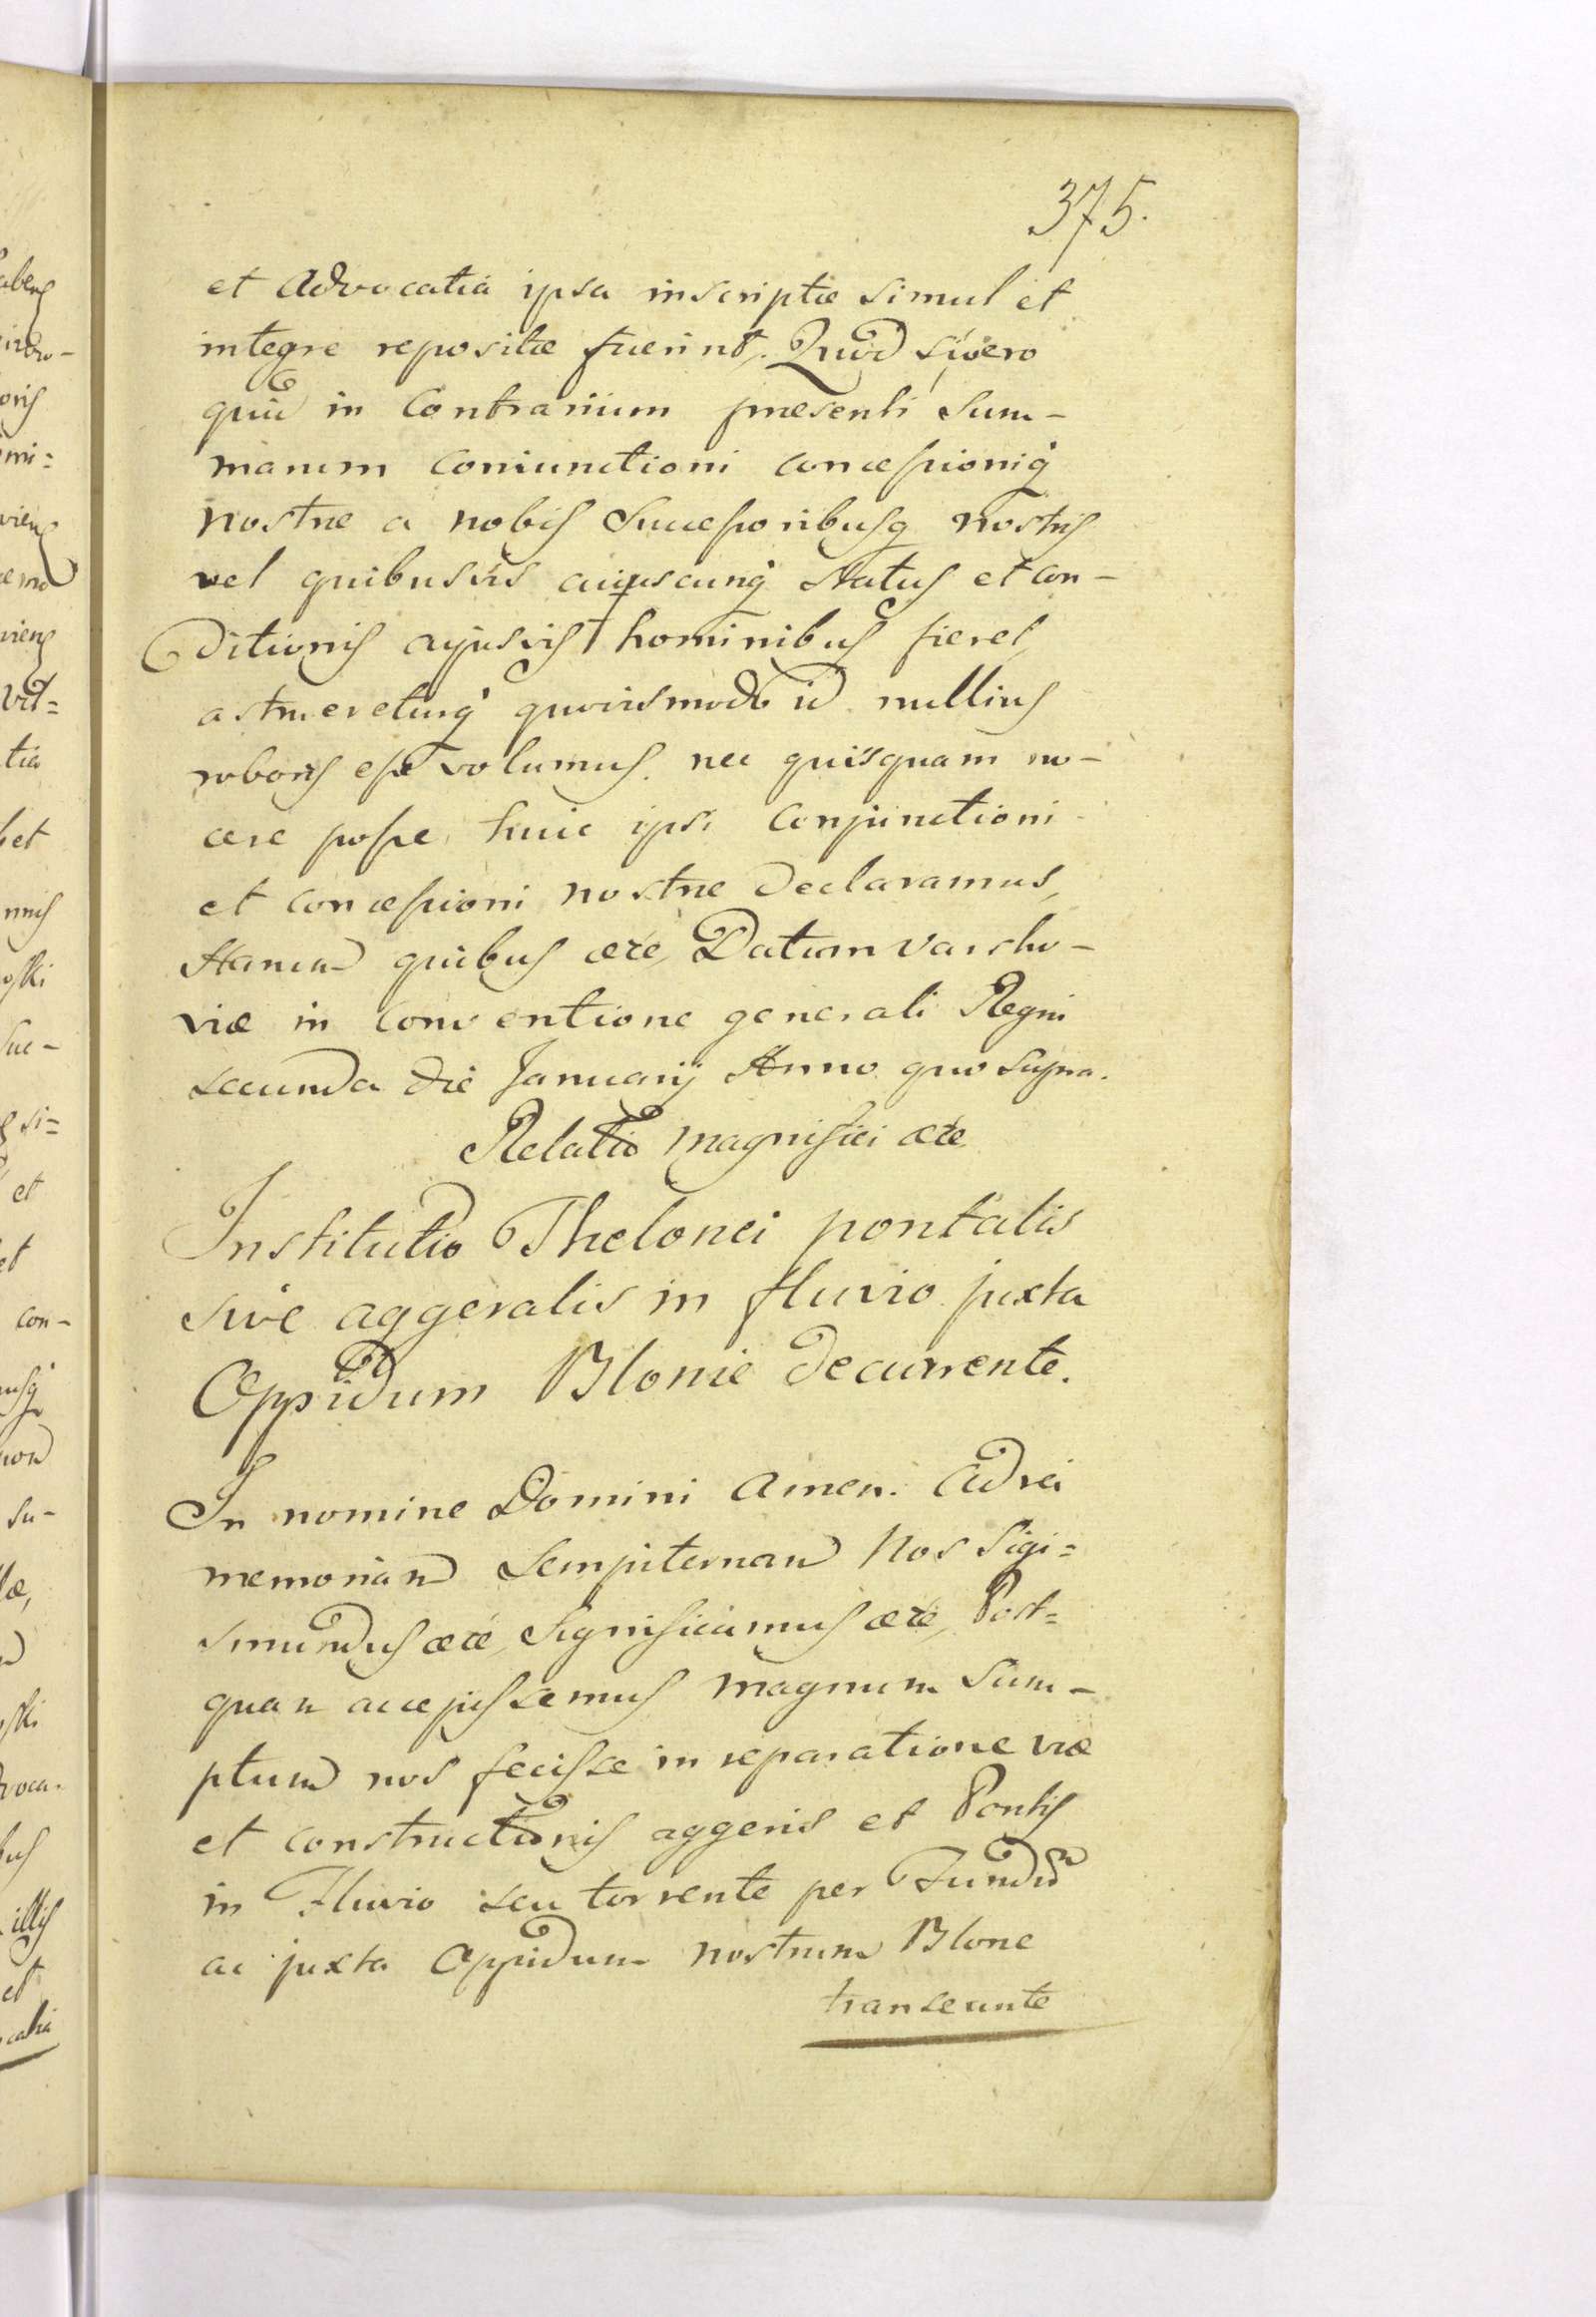 375.
et Advocatia ipsa inscriptæ simul et
integre repositæ fuerint, Quod si vero
quid in Contrarium præsenti Sum-
marum coniunctioni concessioniq́
nostræ a nobis Successoribusq nostris
vel quibusvis cuiuscunq́ Status et con-
ditionis cujusvis hominibus fieret,
astruereturq́ quovismodo id nullius
roboris esse volumus. nec quisquam no-
cere posse huic ipsi Conjunctioni
et concessioni nostræ declaramus,
Harum quibus etc, Datum Varsho-
viæ in conventione generali Regni
secunda die Januarij Anno quo supra.
Relatio magnifici etc
Institutio Thelonei pontalis
sive aggeralis in fluvio juxta
Oppidum Blonie decurrente.
In nomine Domini Amen. Ad rei
memoriam Sempiternam Nos Sigi=
smundus etc, Significamus etc, Post=
quam accepissemus magnum Sum-
ptum nos fecisse in reparatione viæ
et constructionis aggeris et Pontis
in Fluvio seu torrente per Fundum
ac juxta Oppidum nostrum Blone
transeunte